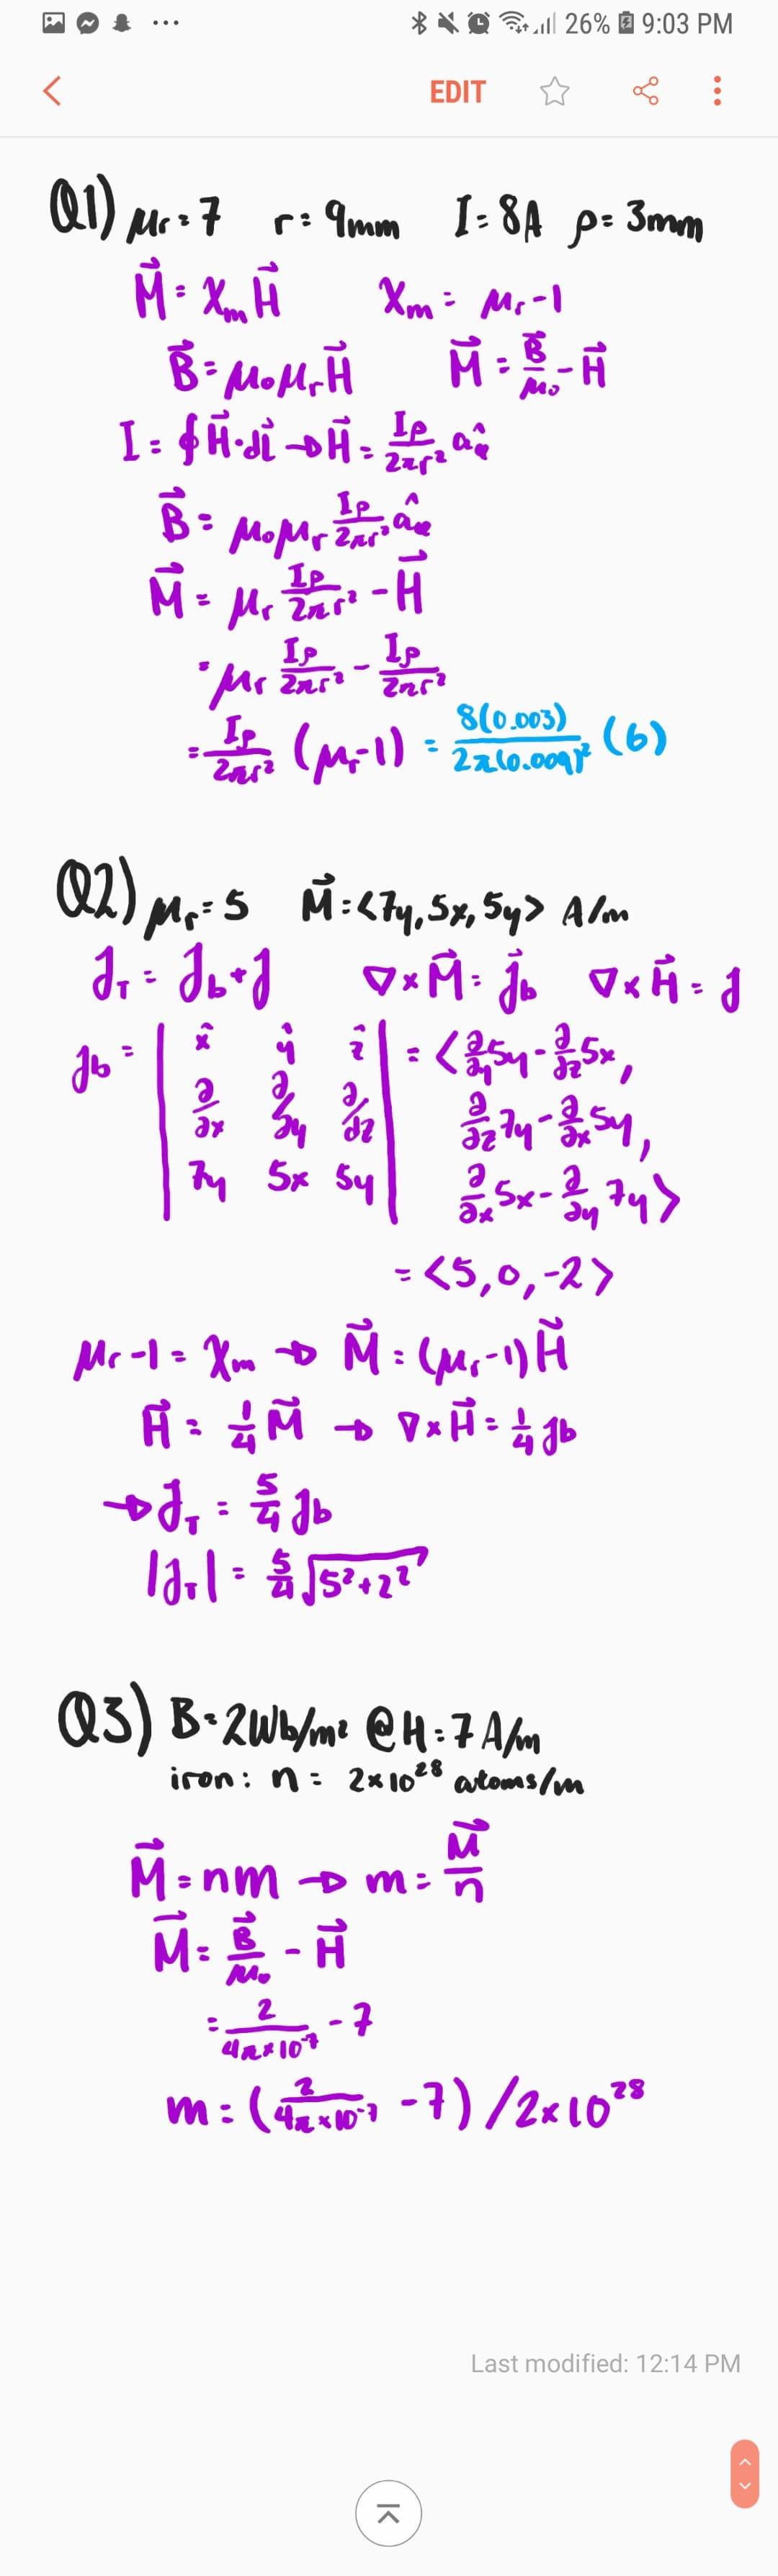 26% 9:03 PM
EDIT
Q1) μr = 7 r = 9mm I = 8A ρ = 3mm
M⃗ = χm H⃗ χm = μr - 1
B⃗ = μ₀μrH⃗ M⃗ = B⃗/μ₀ - H⃗
I = ∮H⃗·dl⃗ → H⃗ = Iρ/2πr² âφ
B⃗ = μ₀μr Iρ/2πr² âφ
M⃗ = μr Iρ/2πr² - H⃗
= μr Iρ/2πr² - Iρ/2πr²
= Iρ/2πr² (μr-1) = 8(0.003)/2π(0.009)² (6)
Q2) μr = 5 M⃗ = <7y, 5x, 5y> A/m
J_T = J_b + J ∇×M⃗ = J⃗_b ∇×H⃗ = J
J_b = | x̂ ŷ ẑ | = <∂/∂y 5y - ∂/∂z 5x,
∂/∂x ∂/∂y ∂/∂z ∂/∂z 7y - ∂/∂x 5y,
7y 5x 5y ∂/∂x 5x - ∂/∂y 7y>
= <5, 0, -2>
μr - 1 = χm → M⃗ = (μr-1)H⃗
H⃗ = 1/4 M⃗ → ∇×H⃗ = 1/4 J_b
→ J_T = 5/4 J_b
|J_T| = 5/4 √(5²+2²)
Q3) B = 2Wb/m² @ H = 7 A/m
iron: n = 2×10²⁸ atoms/m
M⃗ = nm → m = M⃗/n
M⃗ = B⃗/μ₀ - H⃗
= 2/4π×10⁻⁷ - 7
m = (2/4π×10⁻⁷ - 7) / 2×10²⁸
Last modified: 12:14 PM